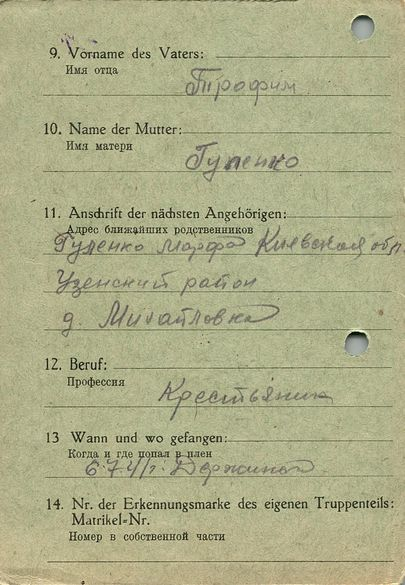 9. Vorname des Vaters:
Имя отца
Трофим
10. Name der Mutter:
Имя матери
Гуленко
11. Anschrift der nächsten Angehörigen:
Адрес ближайших родственников
Гуленко Марфа Киевская обл.
Узенский район
д. Михайловка
12. Beruf:
Профессия
Крестьянин
13 Wann und wo gefangen:
Когда и где попал в плен
6.7.41 г.
14. Nr. der Erkennungsmarke des eigenen Truppenteils:
Matrikel-Nr.
Номер в собственной части